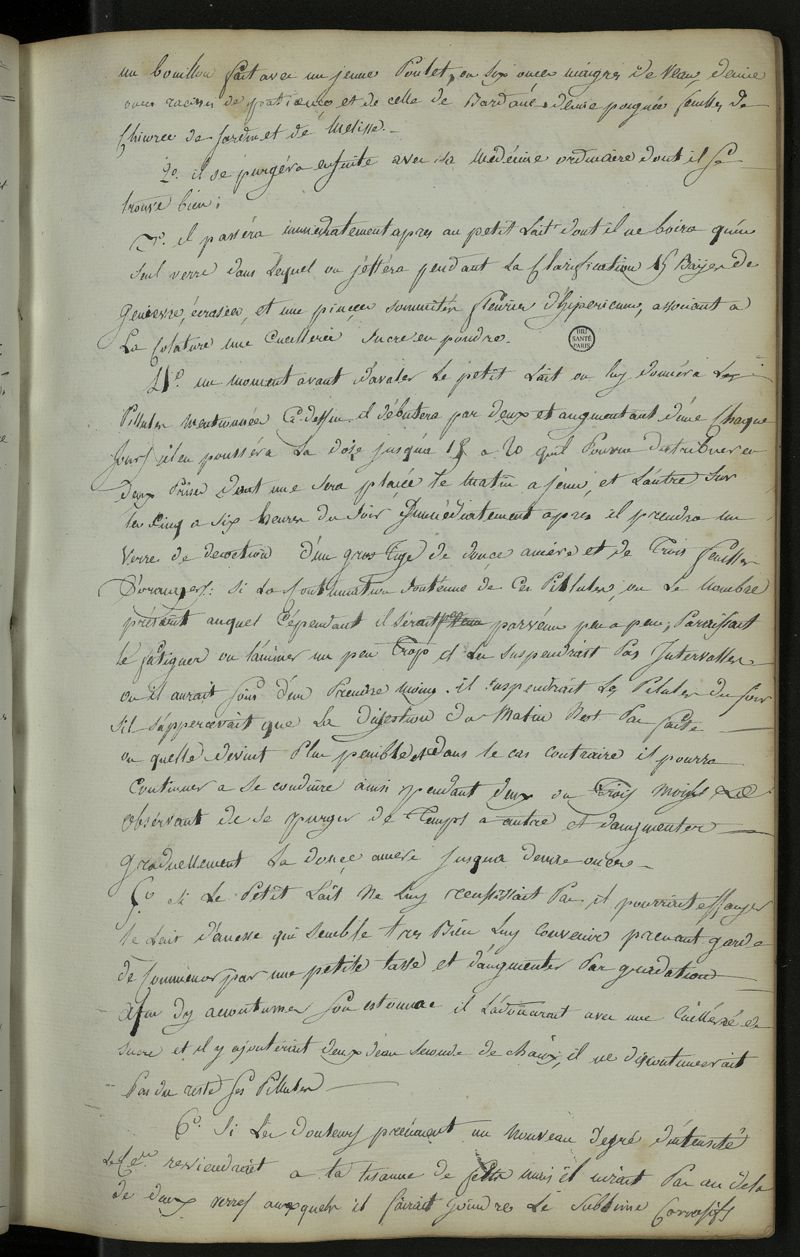 un bouillon fait avec un jeune Poulet, ou Six onces maigres de Veau demie
onces racines de patience et de celle de Bardane demie poignée feuilles de
Chicoree de Jardin et de Melisse.
2o. il se purgéra ensuite avec sa Medécine ordinaire dont il se
trouve bien;
3o. il passéra immediatement apres au petit Lait dont il ne boira qu'un
Seul verre dans Lequel on jéttéra pendant La Clarification 15 Baÿes de
Genievre, écrasées, et une pincée sommités fleuries d'hipericum, associant a
La Colature une Cueillerée Sucre en poudre.
BIU
SANTÉ
PARIS
4o. un moment avant d'avaler Le petit Lait on luy donnéra Les
Pillules mentionnées Ci-dessus il débutera par deux et augmentant d'une Chaque
Jours il en pousséra La dose jusqu'a 15 a 20 qu'il Pourra distribuer en
deux Prises dont une Sera placée le Matin a jeun, et L'autre Sur
les Cinq a Six heures du Soir Immédiatement apres il prendra un
Verre de decoction d'un gros tige de douce amére et de Trois feuilles
D'oranger: Si La Continuation Soutenue de Ces Pillules, ou Le Nombre
présent auquel Cépendant il Sérait parvénu peu a peu, Paraissait
le fatiguer ou L'animer un peu Trop il Les Suspendrait Par Intervalles
ou il aurait Soins d'en Prendre Moins. il Suspendrait Les Pilules du Soir
S'il S'appercevait que La Digestion du Matin N'est Pas faite
ou quelle devint Plus penible et dans le cas contraire il pourra
Continuer a Se conduire ainsi pendant deux ou Trois Mois
Observant de Se purger de Temps a autre et d'augmenter
Graduellement La douce amere Jusqua demie once.
5o. Si Le Petit Lait Ne Luy réussissait Pas il pourrait essayer
le Lait d'anesse qui Semble tres Bien Luy Convenir prenant garde
de Commencer par une petite tasse et d'augmenter Par gradation
Afin d'y accoutumer Son estomac il L'adoucirait avec une Cuillérée de
Sucre et il y ajouterait deux d'eau Seconde de chaux, il ne discontinuerait
Pas du reste Ses Pillules
6o. Si Les douleurs prenaient un Nouveau degré d'intensité
Le Cen. reviendrait a la tisanne de mais il n'irait Pas au dela
de deux verres auxquels il ferait Joindre Le Sublimé Corrosifs